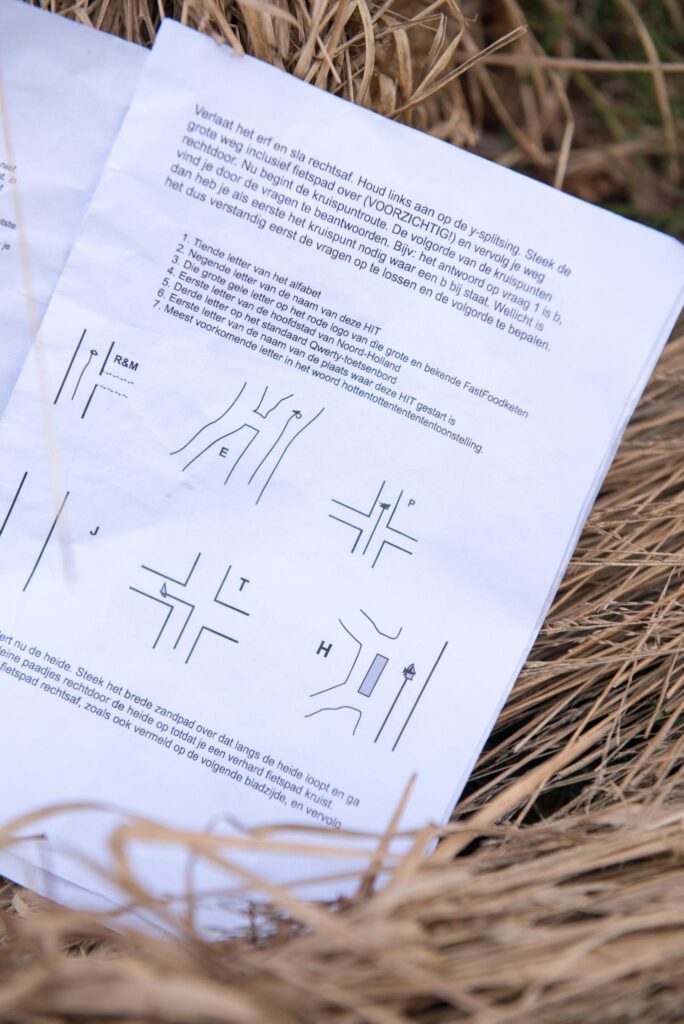 Verlaat het erf en sla rechtsaf. Houd links aan op de y-splitsing. Steek de
grote weg inclusief fietspad over (VOORZICHTIG!) en vervolg je weg
rechtdoor. Nu begint de kruispuntroute. De volgorde van de kruispunten
vind je door de vragen te beantwoorden. Bijv: het antwoord op vraag 1 is b,
dan heb je als eerste het kruispunt nodig waar een b bij staat. Wellicht is
het dus verstandig eerst de vragen op te lossen en de volgorde te bepalen.
1. Tiende letter van het alfabet
2. Negende letter van de naam van deze HIT
3. Die grote gele letter op het rode logo van die grote en bekende FastFoodketen
4. Eerste letter van de hoofdstad van Noord-Holland
5. Derde letter op het standaard Qwerty-toetsenbord
6. Eerste letter van de naam van de plaats waar deze HIT gestart is
7. Meest voorkomende letter in het woord hottentottententententoonstelling.
R&M
E
P
J
T
H
nu de heide. Steek het brede zandpad over dat langs de heide loopt en ga
paadjes rechtdoor de heide op totdat je een verhard fietspad kruist.
fietspad rechtsaf, zoals ook vermeld op de volgende bladzijde, en vervolg